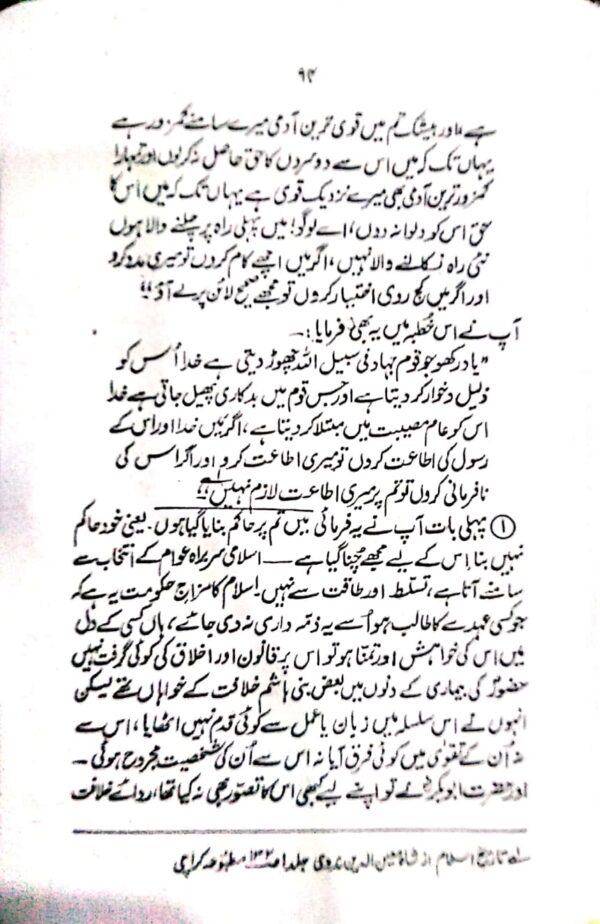 ۹۴
ہے اور بیشک تم میں قوی ترین آدمی میرے سامنے کمزور ہے
یہاں تک کہ میں اس سے دوسروں کا حق حاصل نہ کرلوں اور تمہارا
کمزور ترین آدمی بھی میرے نزدیک قوی ہے یہاں تک کہ میں اس کا
حق اس کو دلوا نہ دوں، اے لوگو! میں پہلی راہ پر چلنے والا ہوں
نئی راہ نکالنے والا نہیں، اگر میں اچھے کام کروں تو میری مدد کرو
اور اگر میں کج روی اختیار کروں تو مجھے صحیح لائن پر لے آؤ"
آپ نے اس خطبہ میں یہ بھی فرمایا :۔
"یاد رکھو جو قوم جہاد فی سبیل اللہ چھوڑ دیتی ہے خدا اُس کو
ذلیل و خوار کر دیتا ہے اور جس قوم میں بدکاری پھیل جاتی ہے خدا
اس کو عام مصیبت میں مبتلا کر دیتا ہے، اگر میں خدا اور اس کے
رسول کی اطاعت کروں تو میری اطاعت کرو اور اگر اس کی
نافرمانی کروں تو تم پر میری اطاعت لازم نہیں ہے"
① پہلی بات آپ نے یہ فرمائی میں تم پر حاکم بنایا گیا ہوں۔ یعنی خود حاکم
نہیں بنا، اس کے لیے مجھے چُنا گیا ہے — اسلامی سربراہ عوام کے انتخاب سے
سامنے آتا ہے، تسلط اور طاقت سے نہیں! اسلام کا مزاج حکومت یہ ہے کہ
جو کسی عہدے کا طالب ہو اُسے یہ ذمہ داری نہ دی جائے، ہاں کسی کے دل
میں اس کی خواہش اور تمنا ہو تو اس پر قانون اور اخلاق کی کوئی گرفت نہیں
حضورؐ کی بیماری کے دنوں میں بعض بنی ہاشم خلافت کے خواہاں تھے لیکن
انہوں نے اس سلسلہ میں زبان یا عمل سے کوئی قدم نہیں اٹھایا، اس سے
نہ اُن کے تقویٰ میں کوئی فرق آیا نہ اس سے اُن کی شخصیت مجروح ہوئی —
اور حضرت ابوبکرؓ نے تو اپنے لیے کبھی اس کا تصور بھی نہ کیا تھا، ردائے خلافت
تاریخ اسلام از شاہ معین الدین ندوی جلد ا ص ۱۳۲ مطبوعہ کراچی